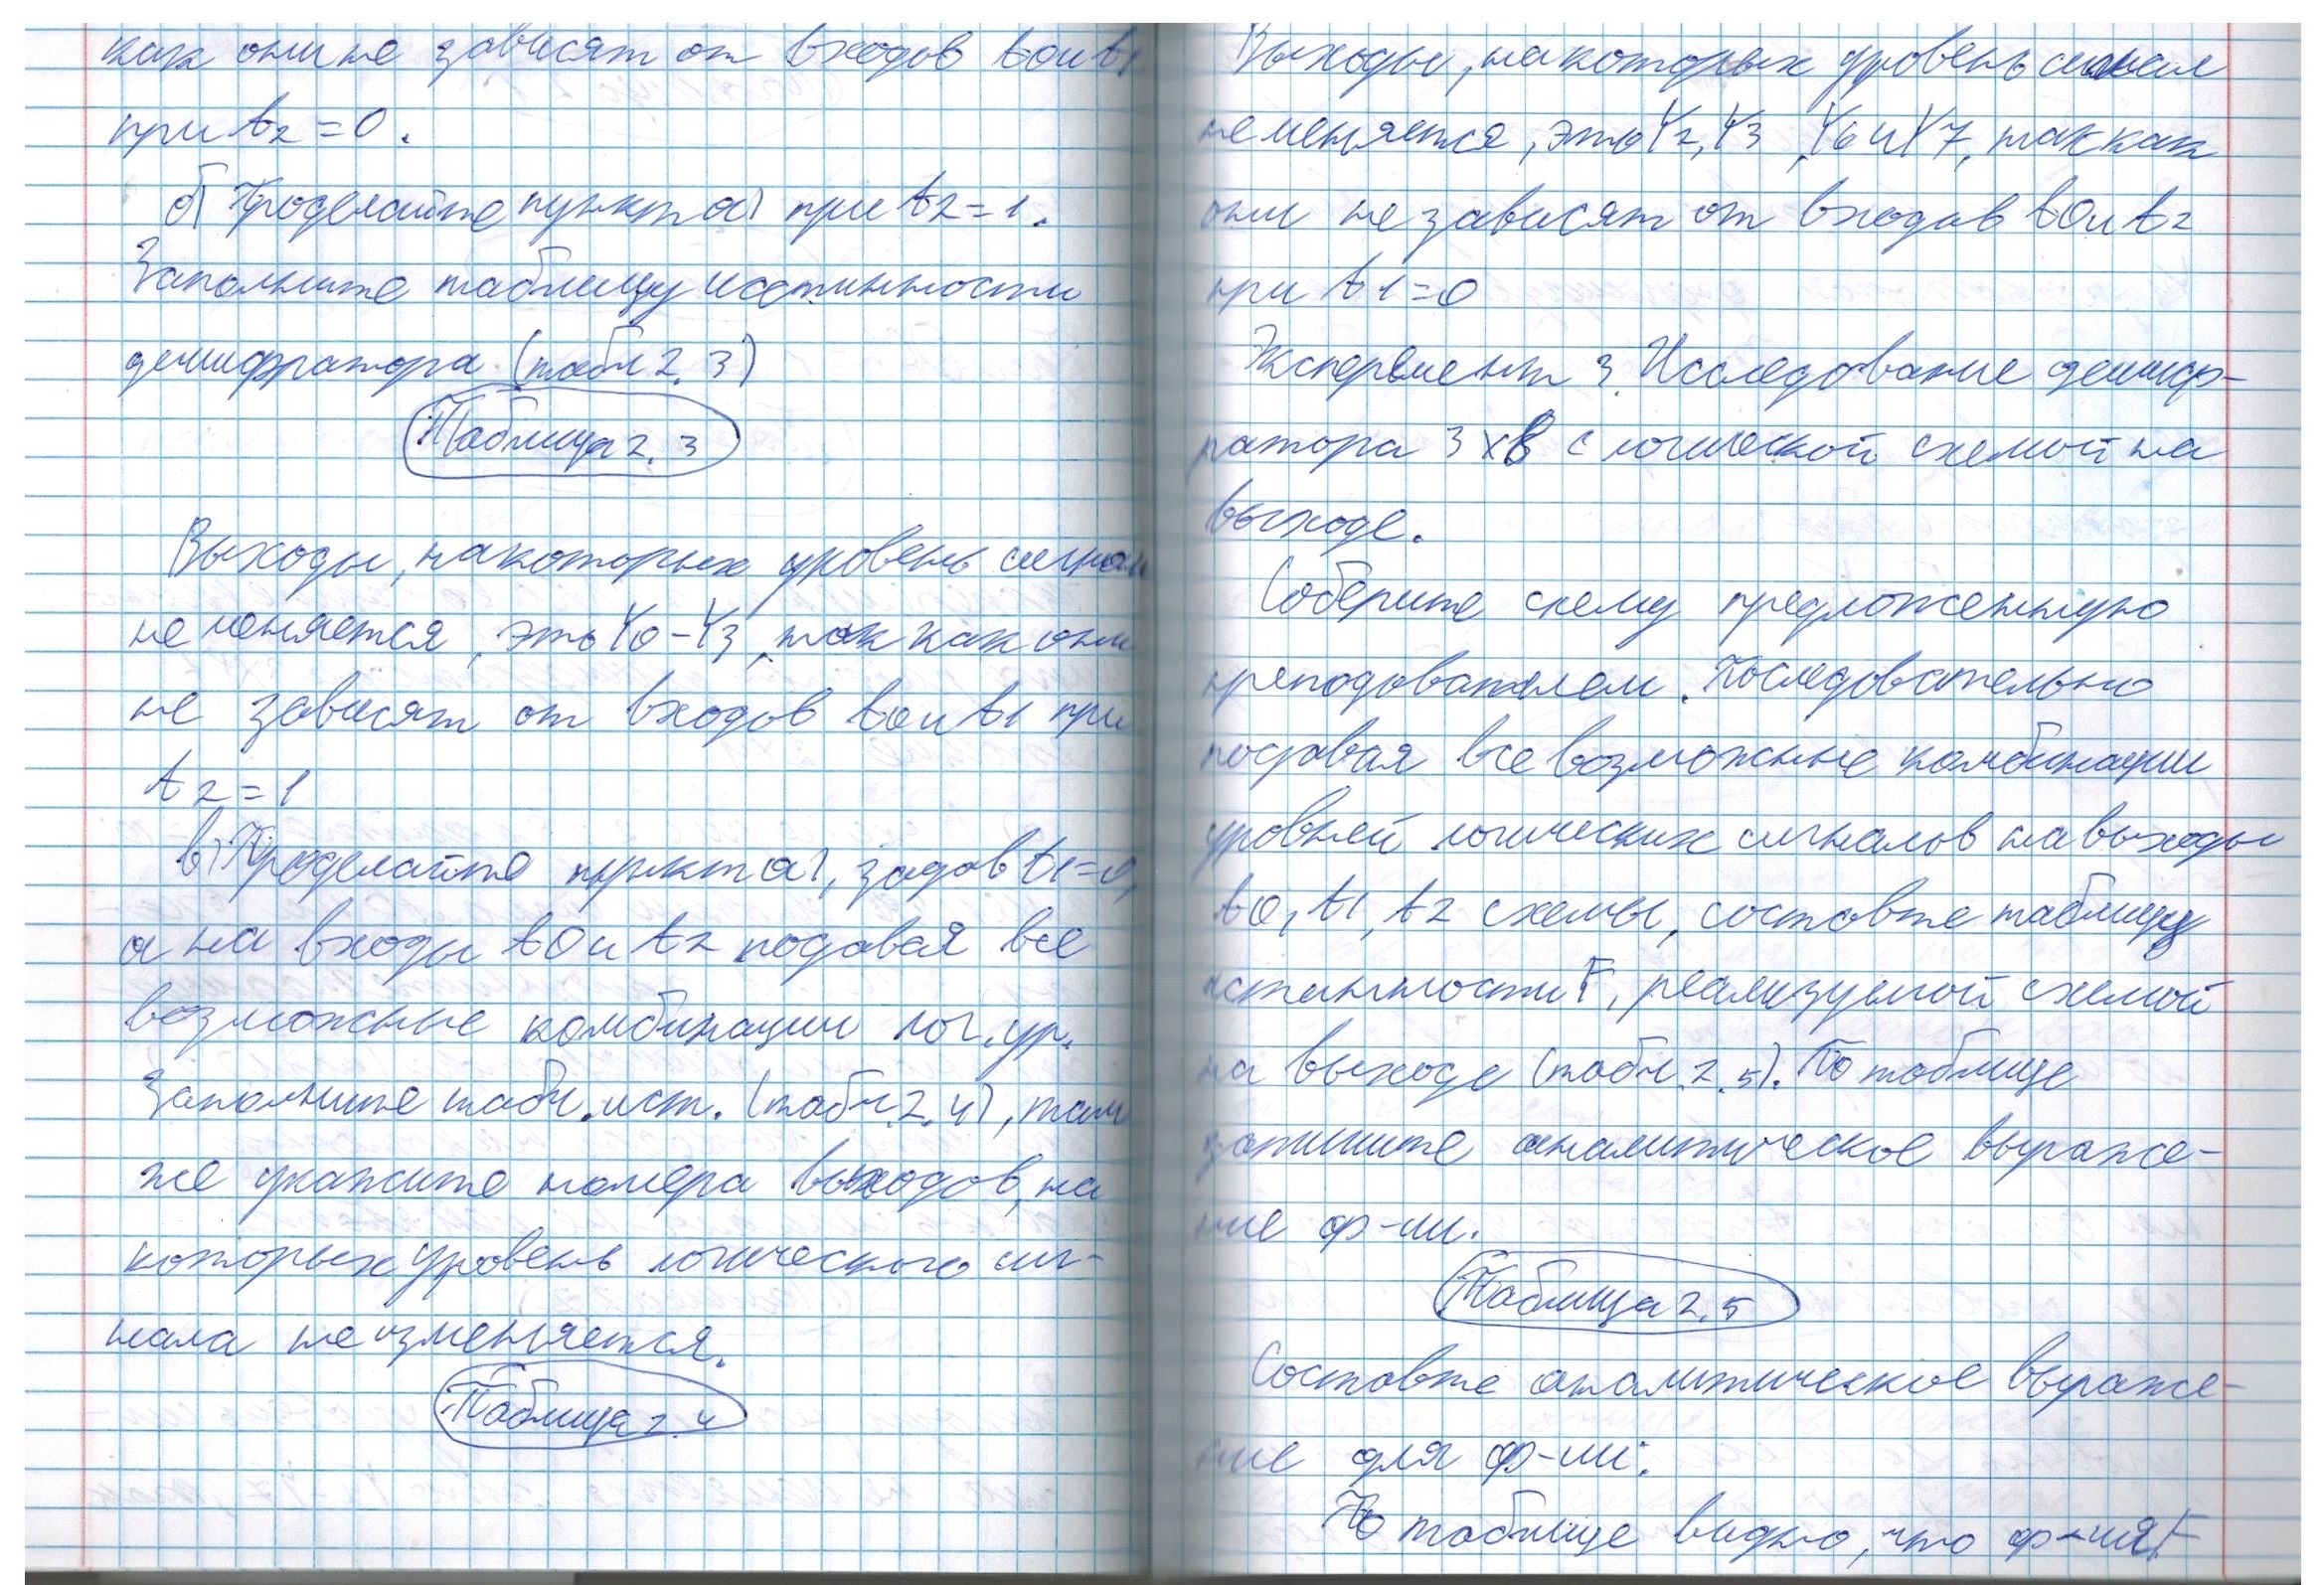 как они не зависят от входов A0 и A1
при A2 = 0.
б) Проделайте пункт а) при A2 = 1.
Заполните таблицу истинности
дешифратора (табл 2.3)
Таблица 2.3
Выходы, на которых уровень сигнал
не меняется, это Y0 – Y3, так как они
не зависят от входов A0 и A1 при
A2 = 1
в) Проделайте пункт а), задав A1 = 0,
а на входы A0 и A2 подавая все
возможные комбинации лог. ур.
Заполните табл. ист. (табл. 2.4), там
же укажите номера выходов, на
которых уровень логического сиг-
нала не изменяется.
Таблица 2.4
Выходы, на которых уровень сигнал
не меняется, это Y2, Y3, Y6 и Y7, так как
они не зависят от входов A0 и A2
при A1 = 0
Эксперемент 3. Исследование дешиф-
ратора 3х8 с логической схемой на
выходе.
Соберите схему предложенную
преподователем. Последовательно
подавая все возможные комбинации
уровней логических сигналов на выходы
A0, A1, A2 схемы, составте таблицу
истинности F, реализуемой схемой
на выходе (табл. 2.5). По таблице
запишите аналитическое выраже-
ние ф-ии.
Таблица 2.5
Составте аналитическое выраже-
ние для ф-ии:
По таблице видно, что ф-ия F